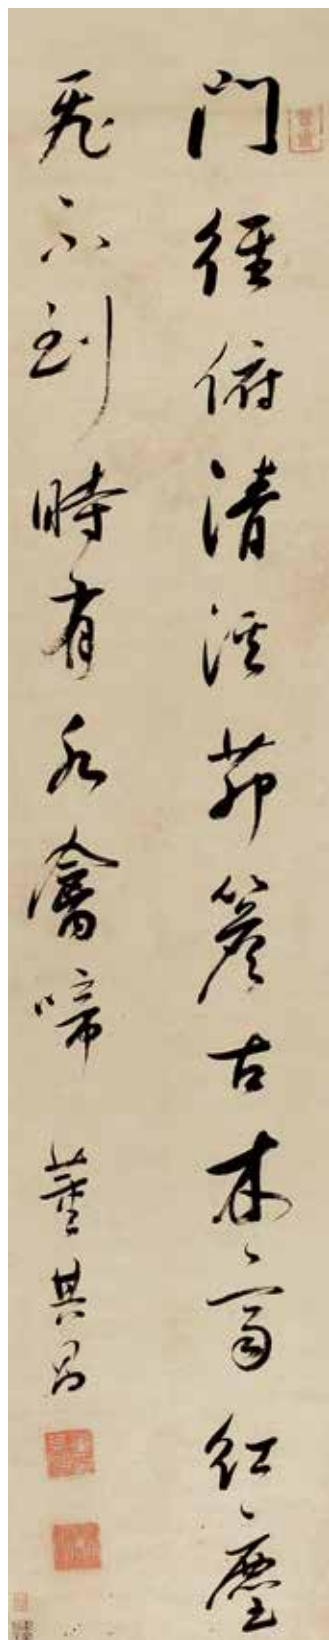 門徑俯清溪茆簷古木齊紅塵
飛不到時有水禽啼 董其昌